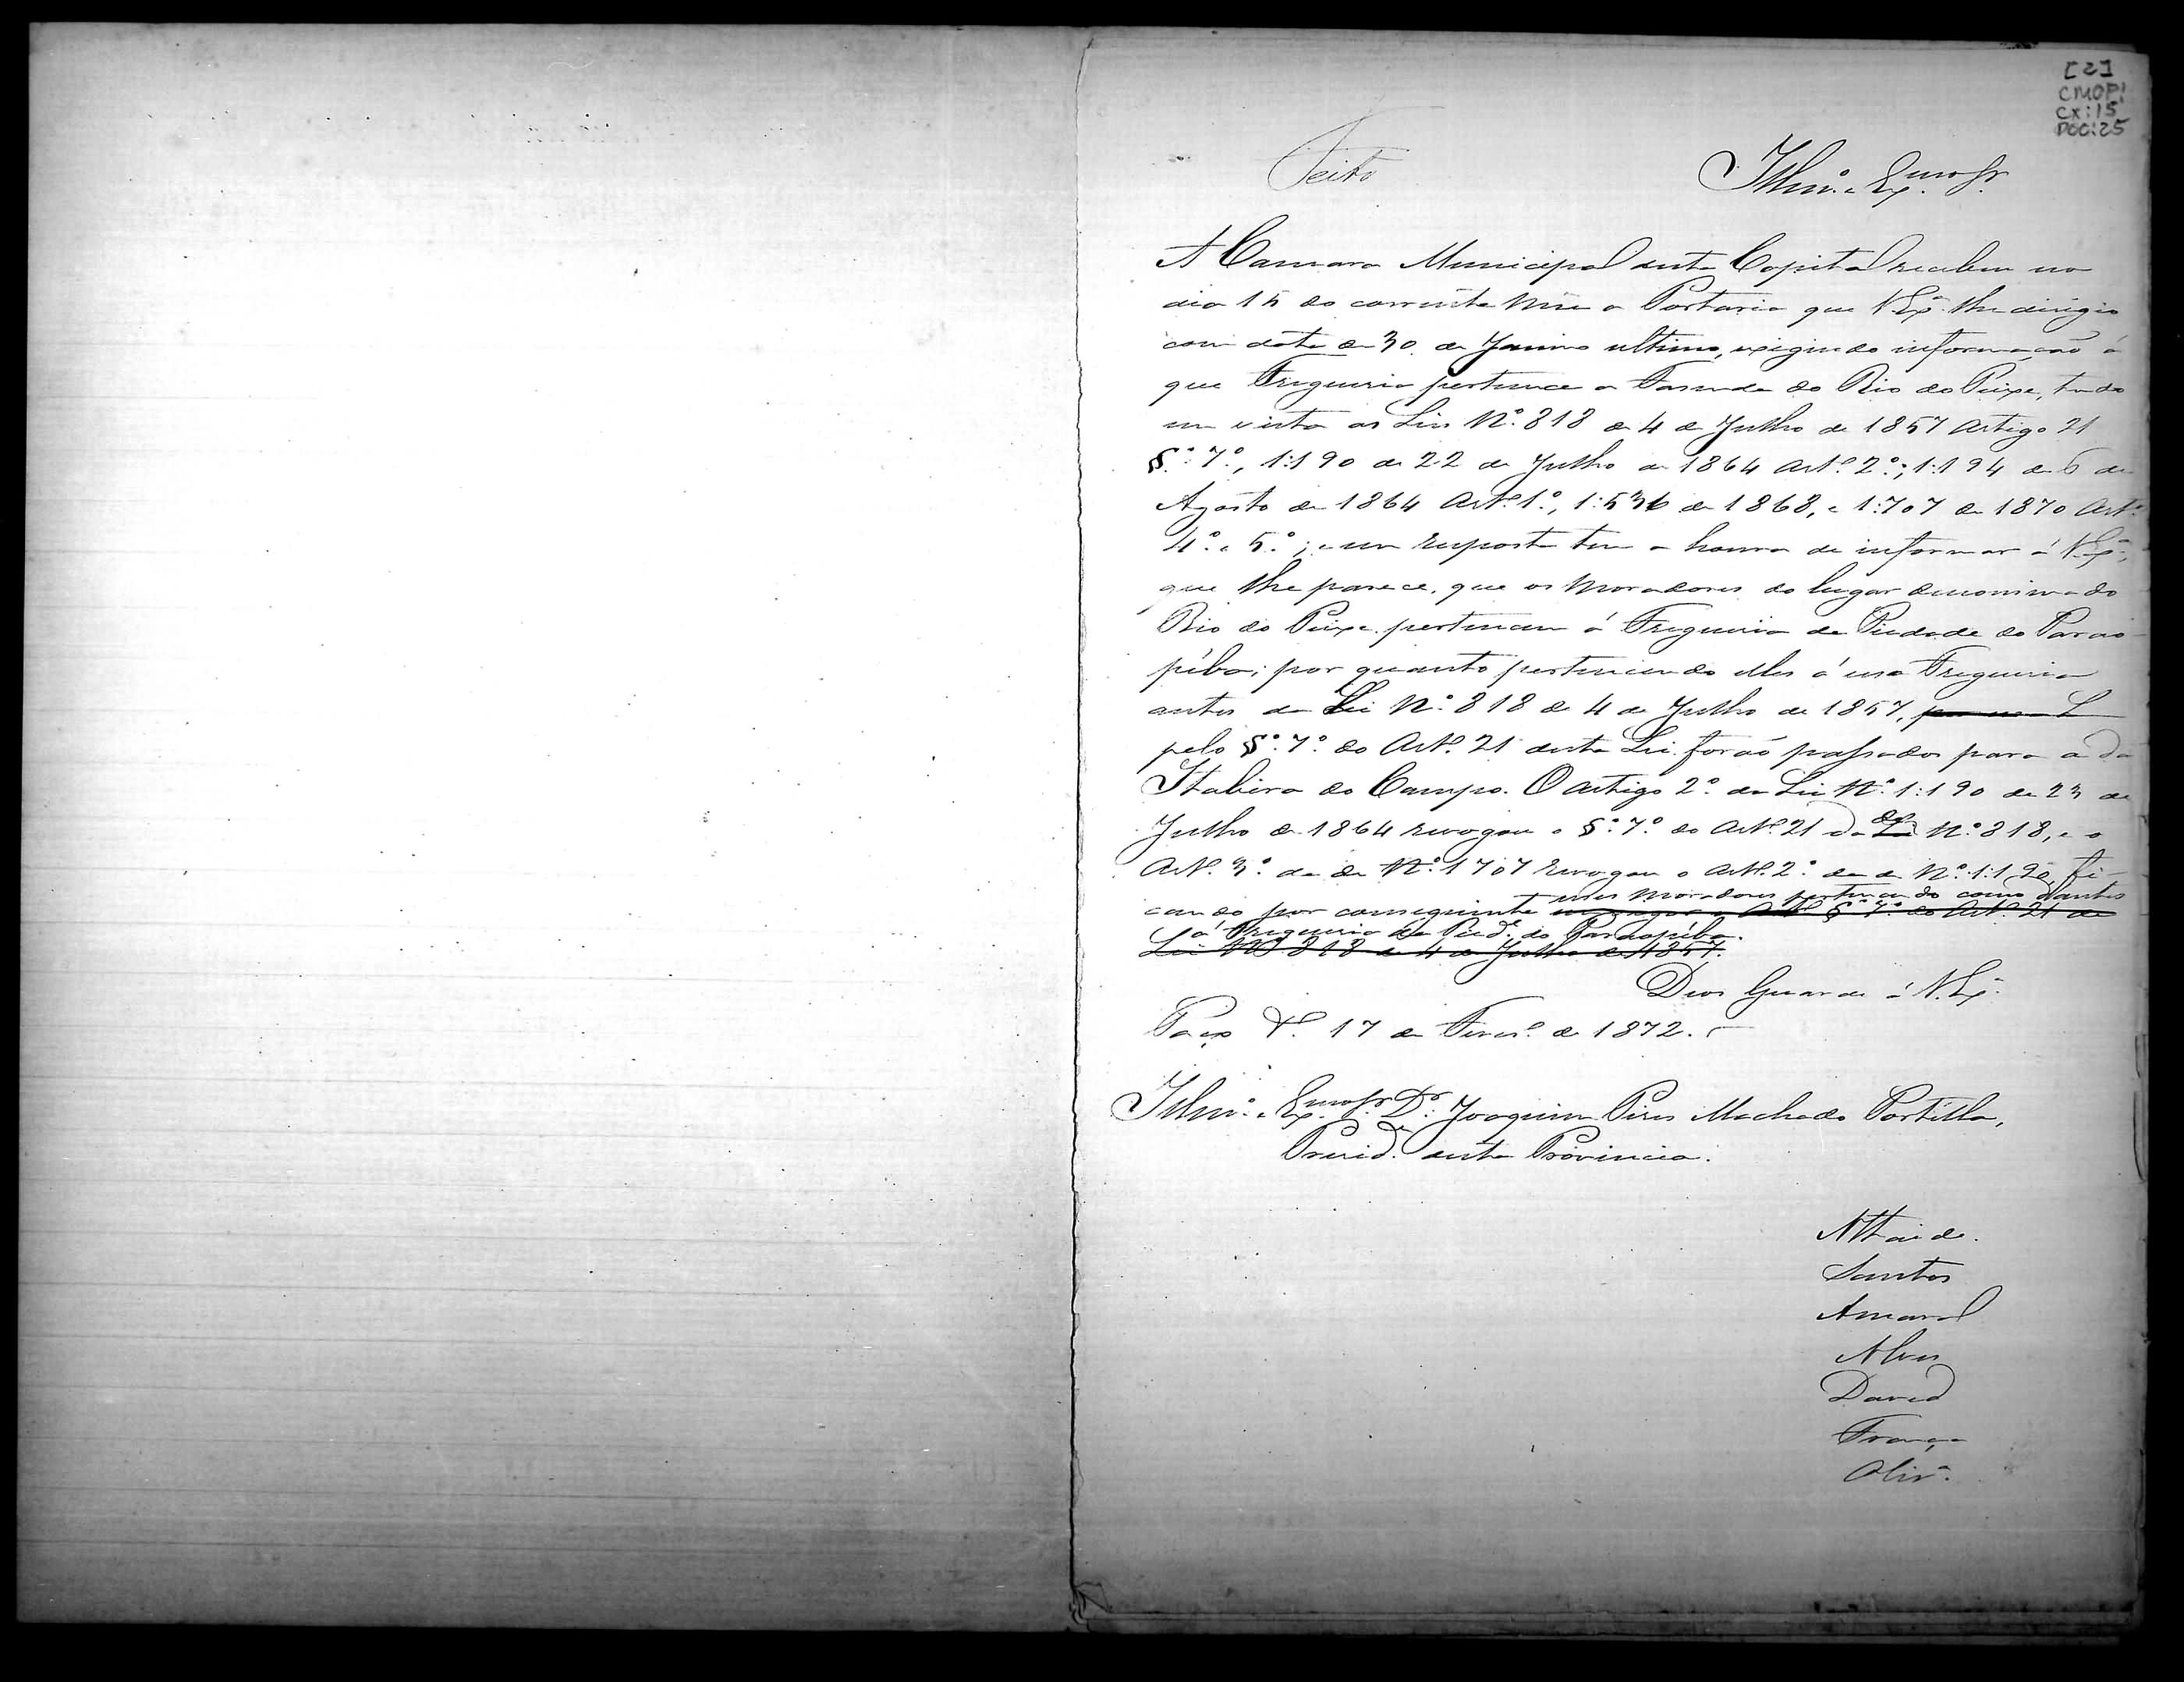 [2]
CMOP/
CX:15
DOC:25
Feito
Illmo. e Exmo Sr.
A Camara Municipal desta Capital recebeu no
dia 15 do corrente mez a Portaria que V. Exa. lhe dirigio
com data de 30 de Janeiro ultimo, exigindo informação á
que Freguezia pertence a Fazenda do Rio do Peixe, tendo
em vista as Leis No. 818 de 4 de Julho de 1857 Artigo 21
§o. 7o., 1:190 de 22 de Julho de 1864 Arto. 2o.; 1:194 de 6 de
Agosto de 1864 Arto. 1o., 1:536 de 1868, e 1:707 de 1870 Arto.
4o. e 5o.; e em resposta tem a honra de informar á V. Exa.,
que lhe parece, que os moradores do lugar denominado
Rio do Peixe pertencem á Freguezia da Piedade do Parao-
péba; por quanto pertencendo elles á essa Freguezia
antes da Lei No. 818 de 4 de Julho de 1857,
pelo §o. 7o. do Arto. 21 desta Lei forão passados para a da
Itabira do Campo. O Artigo 2o. da Lei No. 1:190 de 23 de
Julho de 1864 revogou o §o. 7o. do Arto. 21 da de No. 818, e o
Arto. 3o. da de No. 1707 revogou o Arto. 2o. da de No. 1:190, fi-
cando por conseguinte esses moradores pertencendo como d'antes
§o. 7o. do Arto. 21 da
á Freguezia da Pied.e do Paraopéba.
Lei No. 818 de 4 de Julho de 1857.
Deos Guarde á V. Exa.
Paço 17 de Fevro. de 1872.
Illmo. e Exmo Sr. Dr. Joaquim Pires Machado Portella,
Presid.e desta Provincia.
Athaide.
Santos
Amaral
Alves
David
França
Olivra.